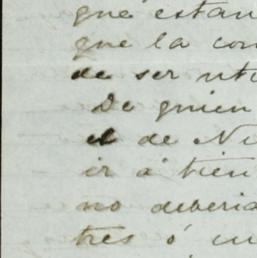 que estan
que la con
de ser uti
De quien
el de Ni
ir á tien
no deberia
tres ó cu